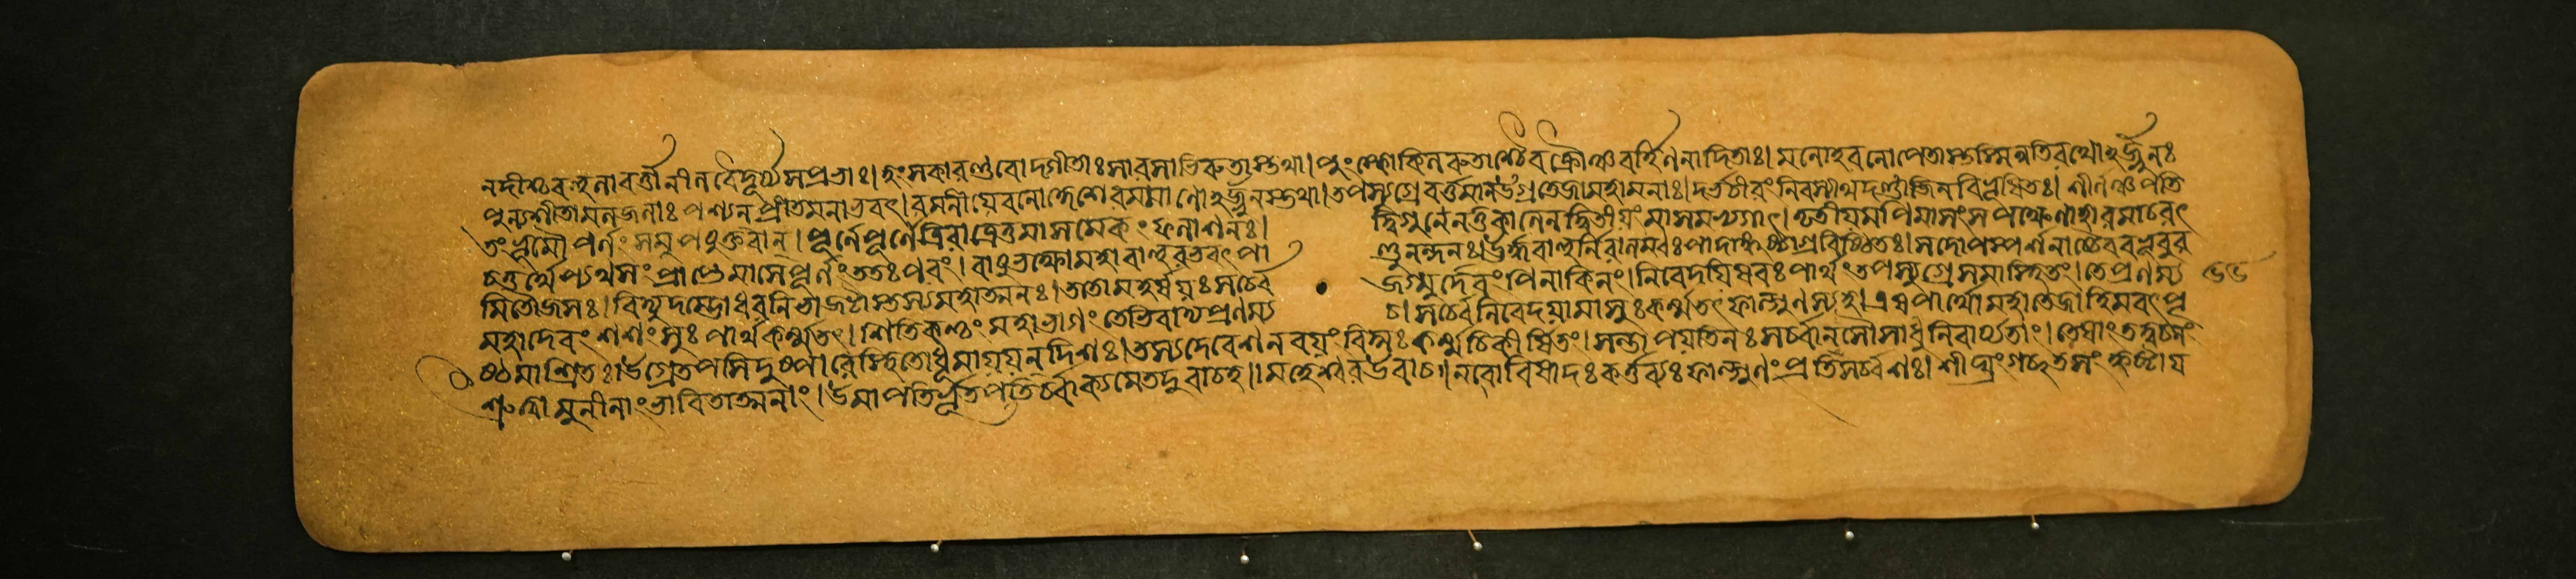 নদীশ্চবহুলাবর্ত্তানীলবৈদূর্য্যসপ্রভাঃ।হংসকারণ্ডবোদ্গীতাঃসারসাভিরুতাস্তথা।পুংস্কোকিলরুতাশ্চৈবক্রৌঞ্চবর্হিণনাদিতাঃ।মনোহরবনোপেতাস্তস্মিন্নতিরথোহর্জ্জুনঃ
পুন্যশীতামলজলাঃপশ্যনপ্রীতমনাভবৎ।রমনীয়েবনোদ্দেশেরমমাণোহর্জ্জুনস্তথা।তপস্যুগ্রেবর্ত্তমানউগ্রতেজামহামনাঃ।দর্ভচীরংনিবস্যাথদণ্ডাজিনবিভূষিতঃ।শীর্ণঞ্চপতি
তংভূমৌপর্ণংসমুপযুক্তবান্।পূর্ণেপূর্ণেত্রিরাত্রেতুমাসমেকংফলাশনঃ।দ্বিগুনেনতুকালেনদ্বিতীয়ংমাসমত্যগাৎ।তৃতীয়মপিমাসংসপক্ষেণাহারমাচরৎ
চতুর্থেপ্যথসংপ্রাপ্তেমাসেপূর্ণেততঃপরং।বায়ুভক্ষোমহাবাহুরভবৎপাণ্ডুনন্দনঃ।ঊর্দ্ধবাহুর্নিরালম্বঃপাদাঙ্গুষ্ঠাগ্রবিষ্ঠিতঃ।সদোপস্পর্শনাচ্চৈববভূবুর
মিতৌজসঃ।বিদ্যুদম্ভোধরনিভাজটাস্তস্যমহাত্মনঃ।ততোমহর্ষয়ঃসর্ব্বেজগ্মুর্দেবংপিনাকিনং।নিবেদয়িষবঃপার্থংতপস্যুগ্রেসমাস্থিতং।তেপ্রণম্য ৬৬
মহাদেবংশশংসুঃপার্থকর্ম্মতৎ।শিতিকণ্ঠংমহাভাগংতেভিবাদ্যপ্রণম্যচ।সর্ব্বেনিবেদয়ামাসুঃকর্ম্মতৎফাল্গুণস্যহ।এষপার্থোমহাতেজাহিমবৎপৃ
ষ্ঠমাশ্রিতঃ।উগ্রেতপসিদুষ্পারেস্থিতোধূমায়য়নদিশঃ।তস্যদেবেশনবয়ংবিদ্মঃকর্ম্মচিকীর্ষিতং।সন্তাপয়তিনঃসর্ব্বানসৌসাধুনিবার্য্যতাং।তেষাংতদ্বচনং
শ্রুত্বামুনীনাংভাবিতাত্মনাং।উমাপতির্ভূতপতির্ব্বাক্যমেতদুবাচহ।।মহেশ্বরউবাচ।।নবোবিষাদঃকর্ত্তব্যঃফাল্গুণংপ্রতিসর্ব্বশঃ।শীঘ্রংগচ্ছতসংহৃষ্টায